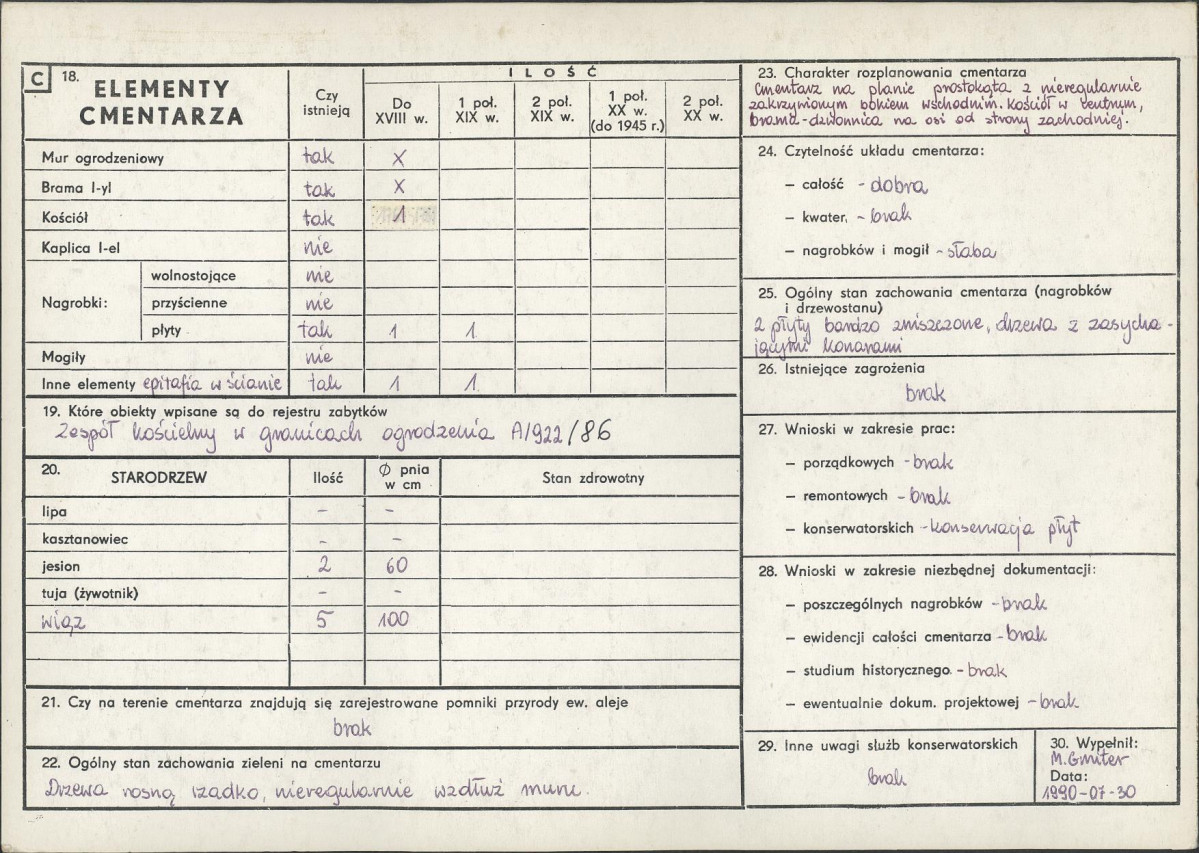 C
18. ELEMENTY CMENTARZA
Czy istnieją
ILOŚĆ
Do XVIII w.
1 poł. XIX w.
2 poł. XIX w.
1 poł. XX w. (do 1945 r.)
2 poł. XX w.
Mur ogrodzeniowy tak X
Brama I-yl tak X
Kościół tak 1
Kaplica I-el nie
Nagrobki: wolnostojące nie
przyścienne nie
płyty tak 1 1
Mogiły nie
Inne elementy epitafia w ścianie tak 1 1
19. Które obiekty wpisane są do rejestru zabytków
Zespół kościelny w granicach ogrodzenia A/922/86
20. STARODRZEW Ilość Ø pnia w cm Stan zdrowotny
lipa - -
kasztanowiec - -
jesion 2 60
tuja (żywotnik) - -
wiąz 5 100
21. Czy na terenie cmentarza znajdują się zarejestrowane pomniki przyrody ew. aleje
brak
22. Ogólny stan zachowania zieleni na cmentarzu
Drzewa rosną rzadko, nieregularnie wzdłuż muru.
23. Charakter rozplanowania cmentarza
Cmentarz na planie prostokąta z nieregularnie
zakrzywionym bokiem wschodnim. Kościół w centrum,
brama-dzwonnica na osi od strony zachodniej.
24. Czytelność układu cmentarza:
— całość - dobra
— kwater, - brak
— nagrobków i mogił - słaba
25. Ogólny stan zachowania cmentarza (nagrobków
i drzewostanu)
2 płyty bardzo zniszczone, drzewa z zasycha-
jącymi konarami
26. Istniejące zagrożenia
brak
27. Wnioski w zakresie prac:
— porządkowych - brak
— remontowych - brak
— konserwatorskich - konserwacja płyt
28. Wnioski w zakresie niezbędnej dokumentacji:
— poszczególnych nagrobków - brak
— ewidencji całości cmentarza - brak
— studium historycznego - brak
— ewentualnie dokum. projektowej - brak
29. Inne uwagi służb konserwatorskich
brak
30. Wypełnił:
M. Gmiter
Data:
1990-07-30